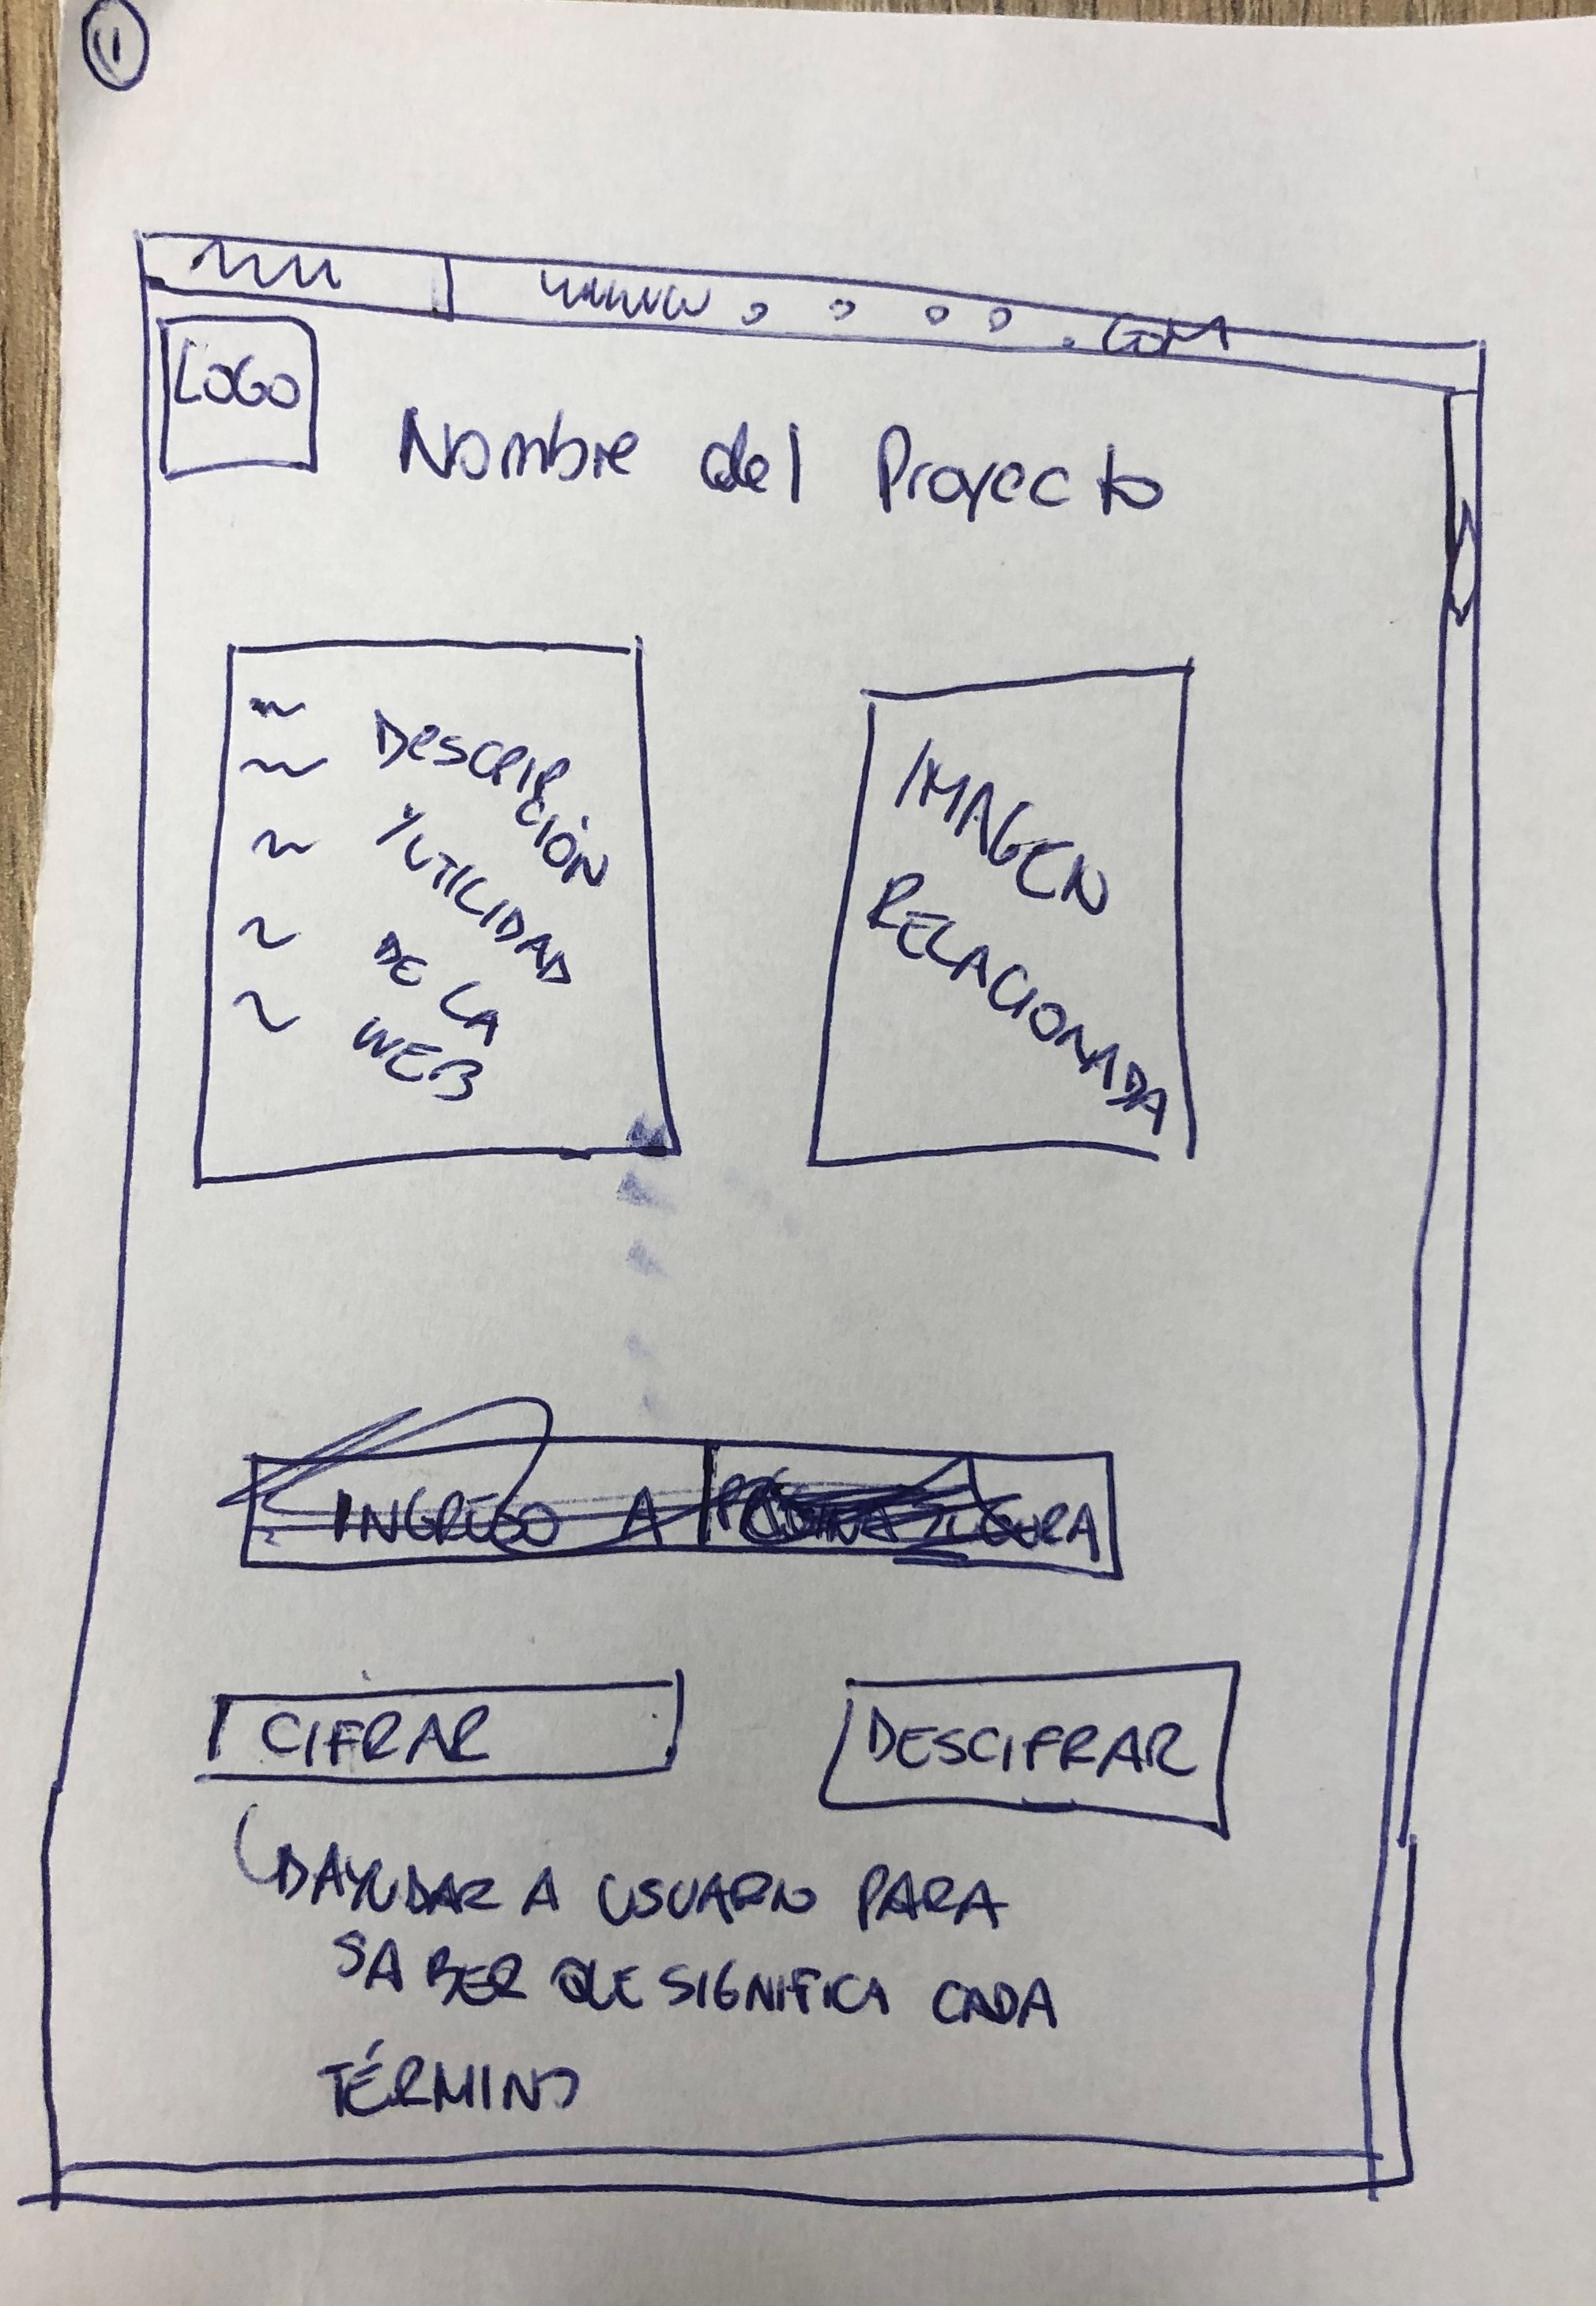 1
.com
LOGO
Nombre del Proyecto
DESCRIP
CIÓN
Y UTILIDAD
DE LA
WEB
IMAGEN
RELACIONADA
INGRESO A
CIFRAR
DESCIFRAR
(DAYUDAR A USUARIO PARA
SABER QUE SIGNIFICA CADA
TÉRMINO